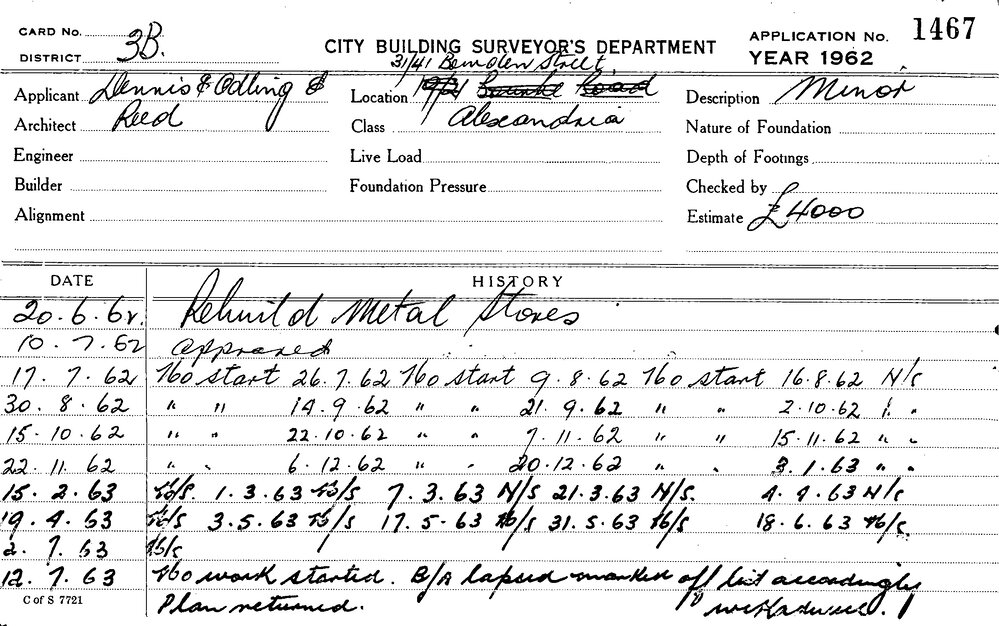 CARD No.
DISTRICT 3B.
CITY BUILDING SURVEYOR'S DEPARTMENT
APPLICATION No. 1467
YEAR 1962
Applicant Dennis & Odling &
Architect Reed
Engineer
Builder
Alignment
31/41 Bowden Street
Location Road
Class Alexandria
Live Load
Foundation Pressure
Description Minor
Nature of Foundation
Depth of Footings
Checked by
Estimate £4000
DATE HISTORY
20.6.62. Rebuild Metal Stores
10.7.62 approved
17.7.62 No start 26.7.62 No start 9.8.62 No start 16.8.62 N/S
30.8.62 " " 14.9.62 " " 21.9.62 " " 2.10.62 " "
15.10.62 " " 22.10.62 " " 7.11.62 " " 15.11.62 " "
22.11.62 " " 6.12.62 " " 20.12.62 " " 3.1.63 " "
15.2.63 N/S. 1.3.63 N/S 7.3.63 N/S 21.3.63 N/S. 4.4.63 N/S
19.4.63 N/S 3.5.63 N/S 17.5.63 N/S 31.5.63 N/S 18.6.63 N/S.
2.7.63 N/S
12.7.63 No work started. B/A lapsed marked off list accordingly
Plan returned.
C of S 7721